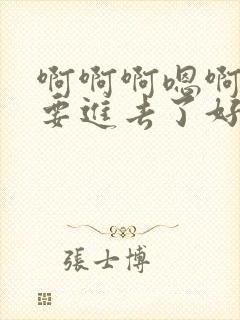 啊啊啊嗯啊
要進去了好
張士博